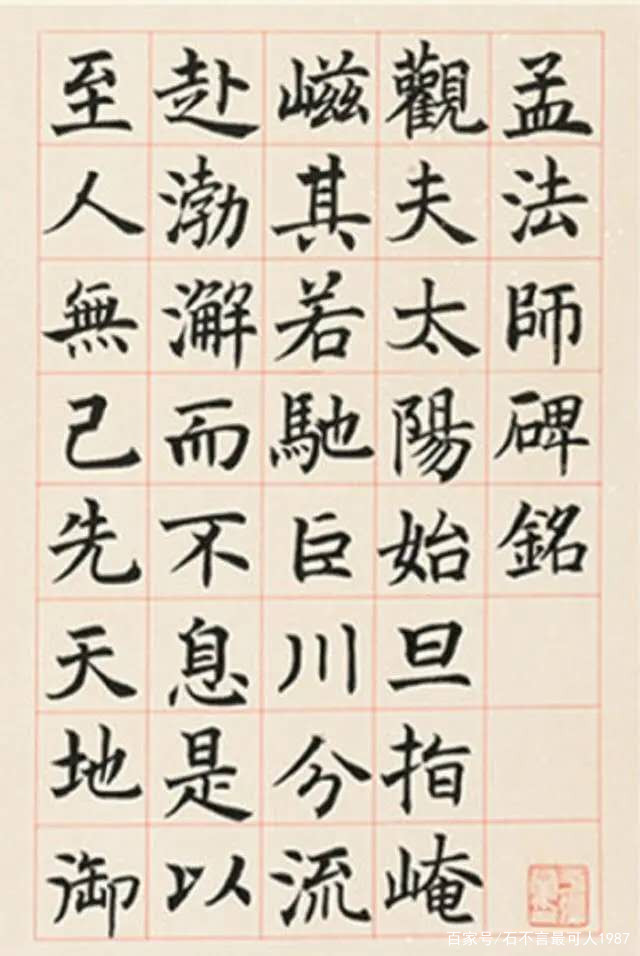 孟法師碑銘
觀夫太陽始旦指崦
嵫其若馳巨川分流
赴渤澥而不息是以
至人無己先天地御
百家号/石不言最可人1987